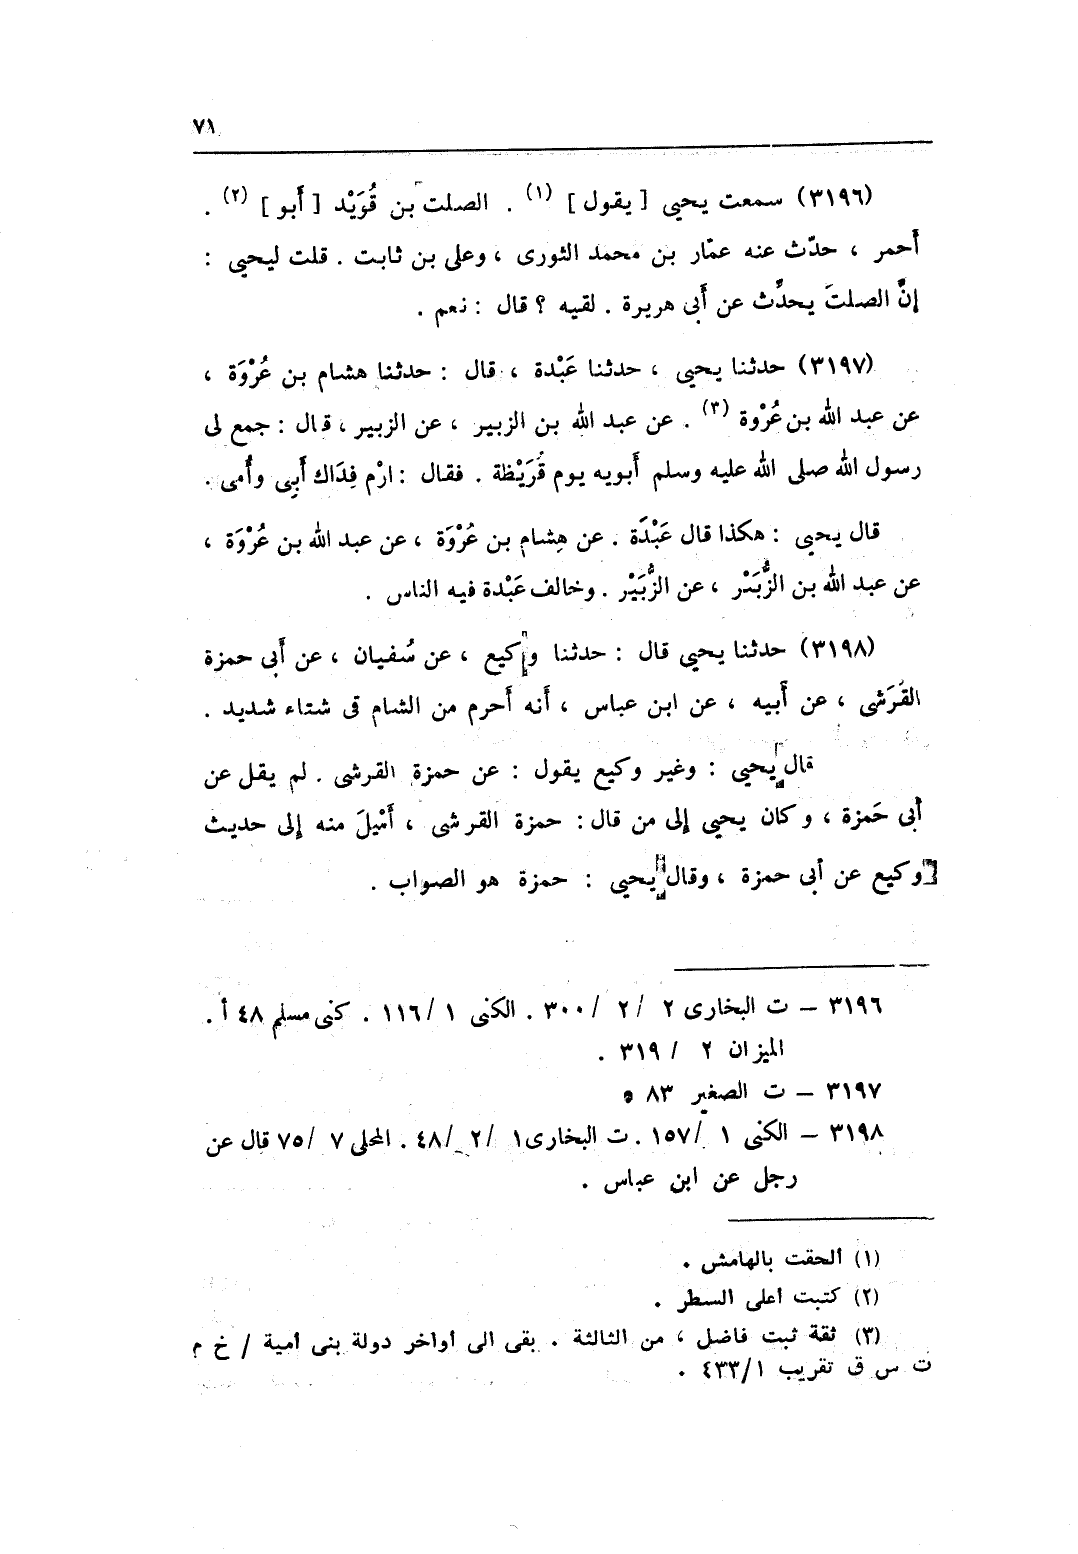 ٧١
(٣١٩٦) سمعت يحيى [ يقول ] (١) . الصلت بن قُوَيْد [ أَبو ] (٢) .
أَحمر ، حدّث عنه عمّار بن محمد الثورى ، وعلى بن ثابت . قلت ليحيى :
إنَّ الصلتَ يحدِّث عن أَبى هريرة . لقيه ؟ قال : نعم .
(٣١٩٧) حدثنا يحيى ، حدثنا عَبْدة ، قال : حدثنا هشام بن عُرْوَة ،
عن عبد الله بن عُرْوة (٣) . عن عبد الله بن الزبير ، عن الزبير ، قال : جمع لى
رسول الله صلى الله عليه وسلم أَبويه يوم قُرَيْظة . فقال : ارْم فِدَاك أَبِى وأُمى .
قال يحيى : هكذا قال عَبْدَة . عن هِشام بن عُرْوَة ، عن عبد الله بن عُرْوَة ،
عن عبد الله بن الزُّبَيْر ، عن الزُّبَيْر . وخالف عَبْدة فيه الناس .
(٣١٩٨) حدثنا يحيى قال : حدثنا وكيع ، عن سُفيان ، عن أَبى حمزة
القُرَشى ، عن أَبيه ، عن ابن عباس ، أَنه أَحرم من الشام فى شتاء شديد .
قال يحيى : وغير وكيع يقول : عن حمزة القرشى . لم يقل عن
أَبى حَمزة ، وكان يحيى إلى من قال : حمزة القرشى ، أَمْيلَ منه إلى حديث
وكيع عن أَبى حمزة ، وقال يحيى : حمزة هو الصواب .
٣١٩٦ – ت البخارى ٢ / ٢ / ٣٠٠ . الكنى ١ / ١١٦ . كنى مسلم ٤٨ أ .
الميزان ٢ / ٣١٩ .
٣١٩٧ – ت الصغير ٨٣ .
٣١٩٨ – الكنى ١ / ١٥٧ . ت البخارى ١ / ٢ / ٤٨ . المحلى ٧ / ٧٥ قال عن
رجل عن ابن عباس .
(١) ألحقت بالهامش .
(٢) كتبت أعلى السطر .
(٣) ثقة ثبت فاضل ، من الثالثة . بقى الى أواخر دولة بنى أمية / خ م
ت س ق تقريب ٤٣٣/١ .